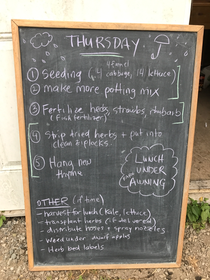 THURSDAY
① Seeding
cabbage, 14 lettuce)
② make more potting mix
③ Fertilize herbs, strawbs, rhubarb
(fish fertilizer)
④ Strip dried herbs + put into
clean ziplocks.
⑤ Hang new
LUNCH
UNDER
AWNING
OTHER (if time)
- harvest for lunch (kale, lettuce)
- transplant herbs (if delivered)
- distribute hoses + spray nozzles
- Weed under dwarf apples
- Herb bed labels